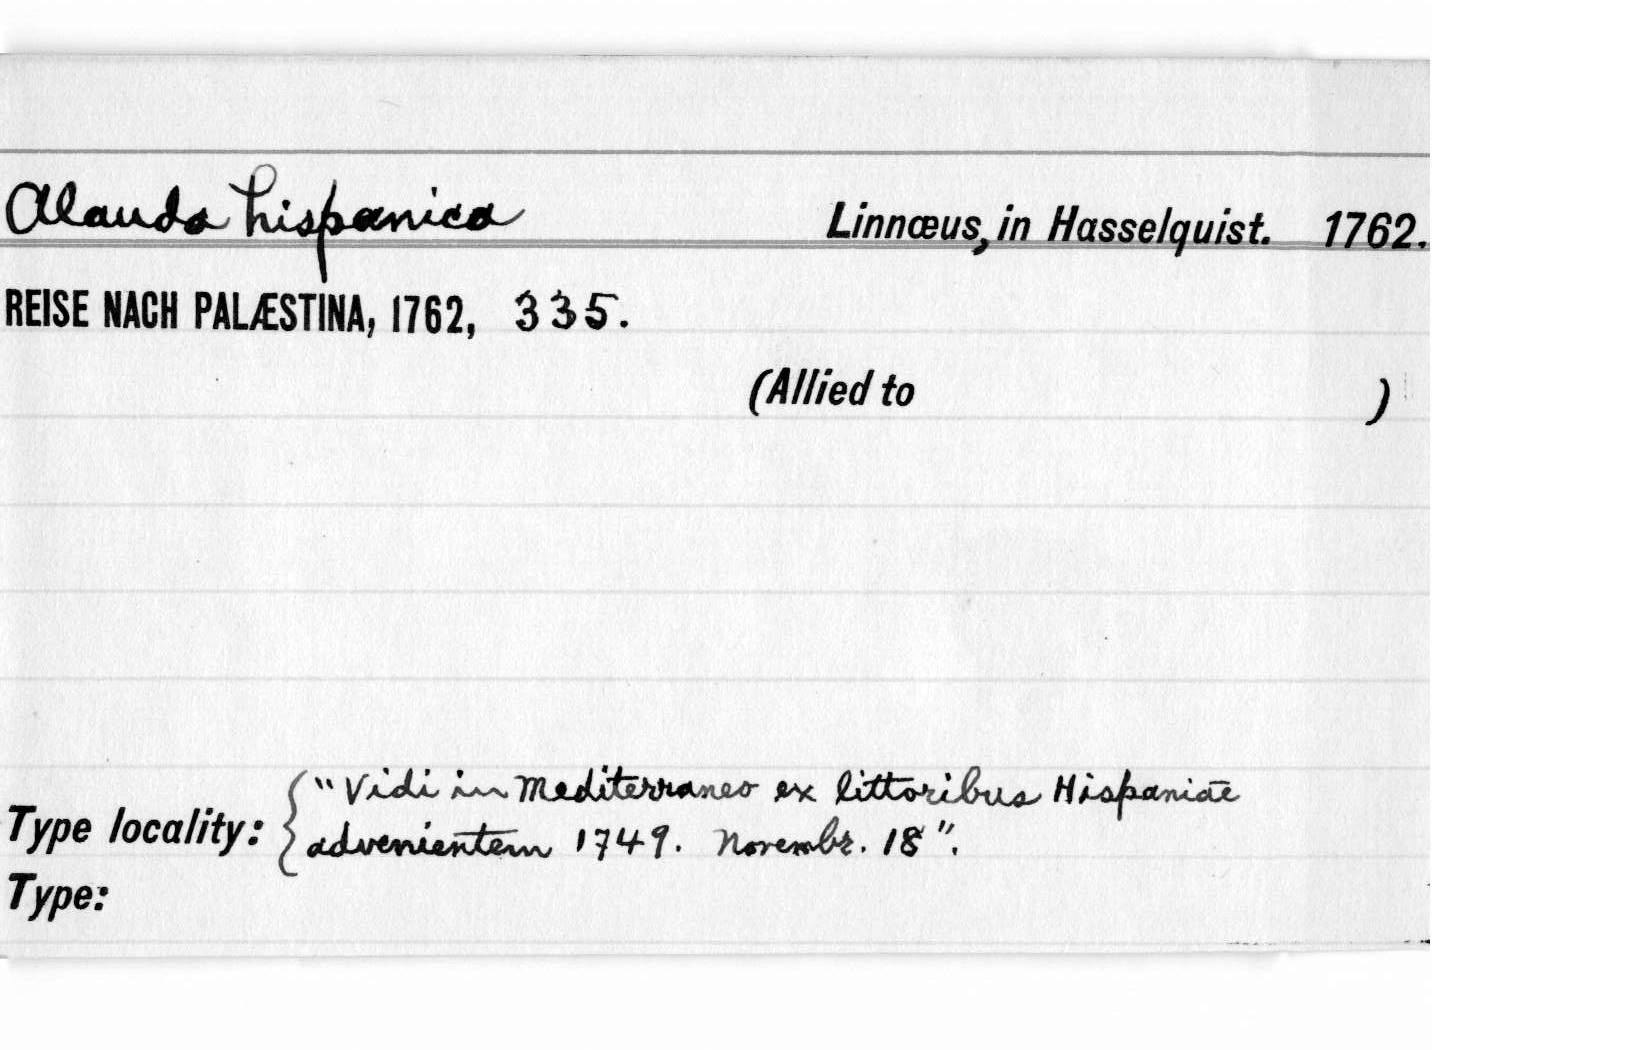 Alauda hispanica Linnœus, in Hasselquist. 1762.
REISE NACH PALÆSTINA, 1762, 335.
(Allied to )
Type locality: { "Vidi in Mediterraneo ex littoribus Hispaniæ
advenientem 1749. Novembr. 18".
Type: